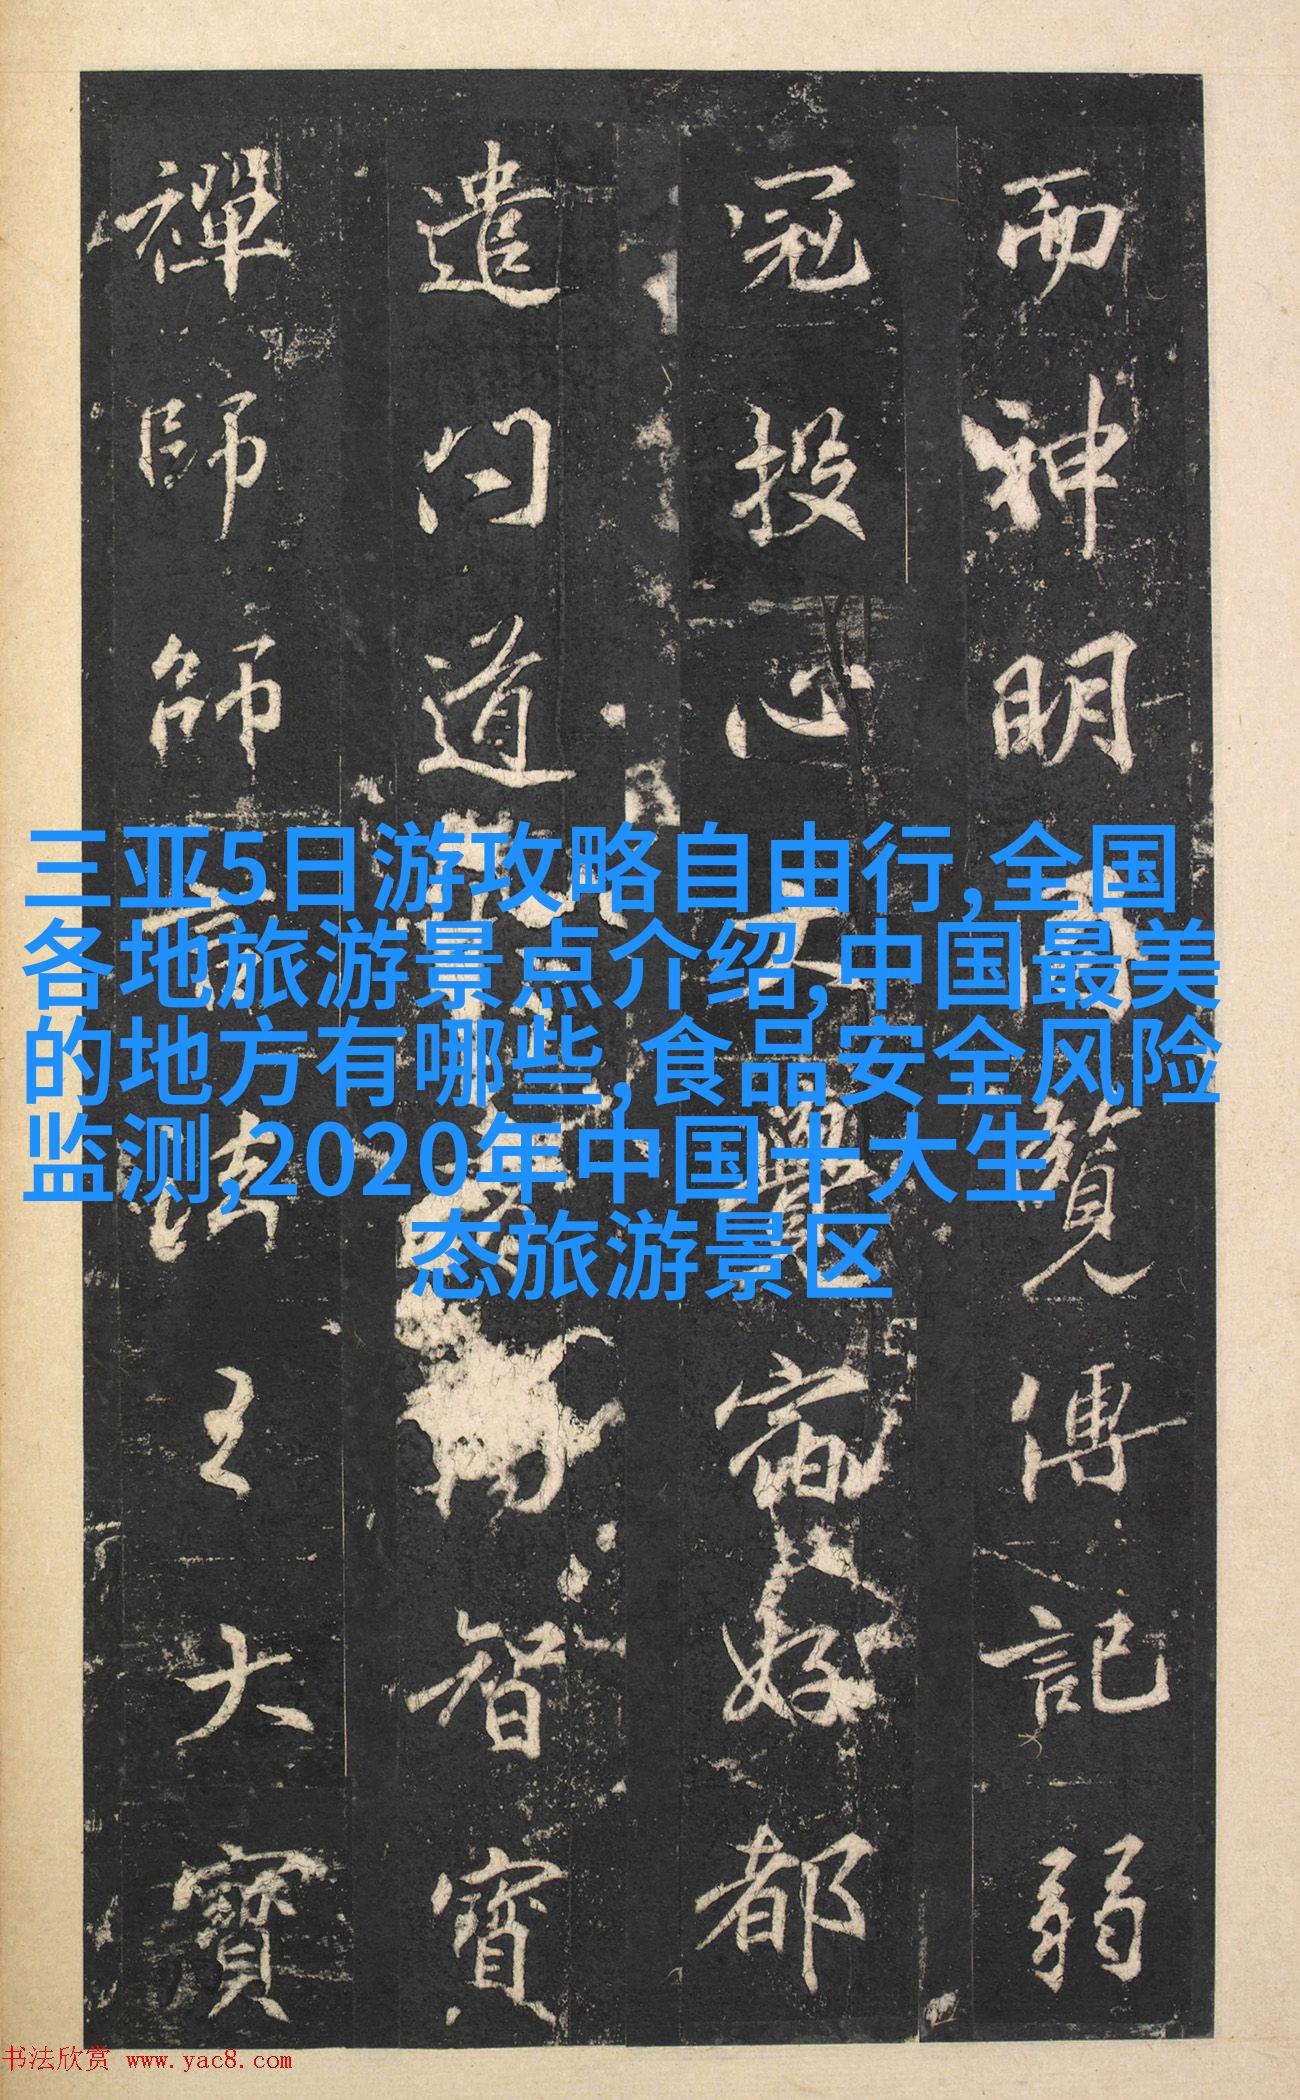 而神明覽傳記弱
冠投心大覺宿好都
遣問道智寶
禪師師法王大寶
三亚5日游攻略自由行,全国
各地旅游景点介绍,中国最美
的地方有哪些,食品安全风险
监测,2020年中国十大生
态旅游景区
书法欣赏 www.yac8.com